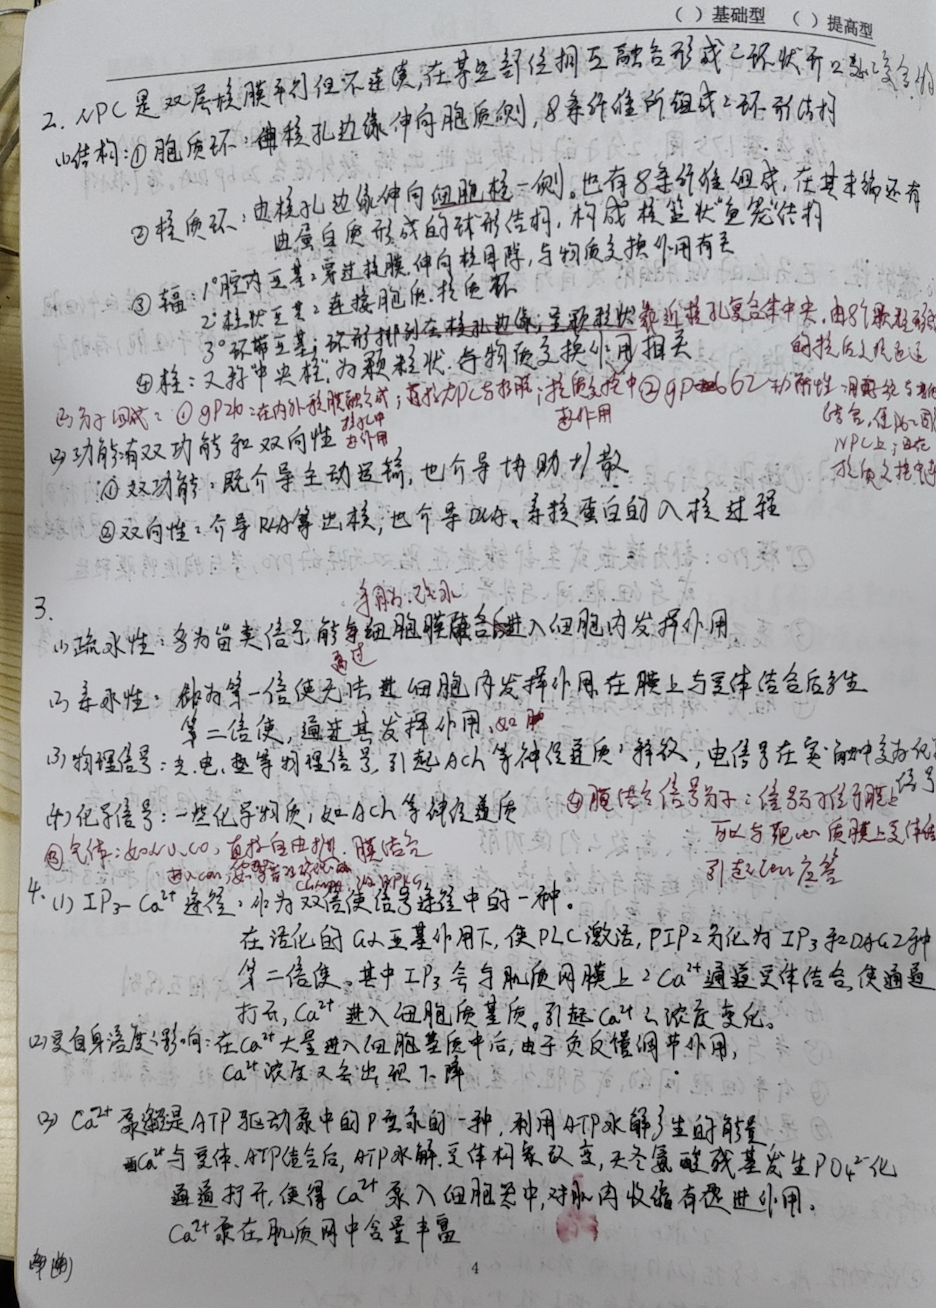 （ ）基础型 （ ）提高型
2. NPC是双层核膜平行但不连续,在某些部位相互融合形成之环状开口
(1)结构:① 胞质环:由核孔边缘伸向胞质侧,8条纤维所组成之环形结构
② 核质环:由核孔边缘伸向细胞核一侧。也有8条纤维组成,在其末端还有
由蛋白质形成的球形结构,构成核篮状"鱼笼"结构
③ 辐:1°腔内亚基:穿过核膜伸向核周隙,与物质交换作用有关
2°柱状亚基:连接胞质、核质环
3°环带亚基:环形排列在核孔边缘;呈颗粒状 靠近核孔复合体中央,由8个颗粒形成
的核质交换通道
④栓:又称"中央栓",为颗粒状.与物质交换作用相关
(2)分子组成:①gp210:在内外核膜融合 ②gp62
起作用
NPC上;且在
核质交换中
(3)功能:有双功能和双向性
① 双功能:既介导主动运输,也介导协助扩散
②双向性:介导RNA等出核;也介导DNA、亲核蛋白的入核过程
3.
(1)疏水性:多为甾类信号,能与细胞膜融合后进入细胞内发挥作用.
通过
(2)亲水性:都为第一信使无法进细胞内发挥作用,在膜上与受体结合后产生
第二信使,通过其发挥作用,如
(3)物理信号:光、电、热等物理信号,引起ACh等神经递质之释放,电信号在
(4)化学信号:一些化学物质,如ACh等神经递质
④膜结合信号分子:信号分子位于膜上
可以与靶cell质膜上受体结
引起cell应答
③气体:如NO、CO,直接自由扩散.膜结合
进入cell,
4. (1) IP3-Ca²⁺途径:作为双信使信号途径中的一种。
在活化的Gα亚基作用下,使PLC激活,PIP2分化为IP3和DAG2种
第二信使。其中IP3会与肌质网膜上之Ca²⁺通道受体结合,使通道
打开,Ca²⁺进入细胞质基质。引起Ca²⁺之浓度变化。
(2)受自身浓度之影响:在Ca²⁺大量进入细胞基质中后,由于负反馈调节作用,
Ca²⁺浓度又会出现下降
(3) Ca²⁺泵是ATP驱动泵中的P型泵的一种,利用ATP水解产生的能量
Ca²⁺与受体、ATP结合后,ATP水解.受体构象改变,天冬氨酸残基发生PO4²⁻化
通道打开,使得Ca²⁺泵入细胞器中,对肌肉收缩有促进作用。
Ca²⁺泵在肌质网中含量丰富
4